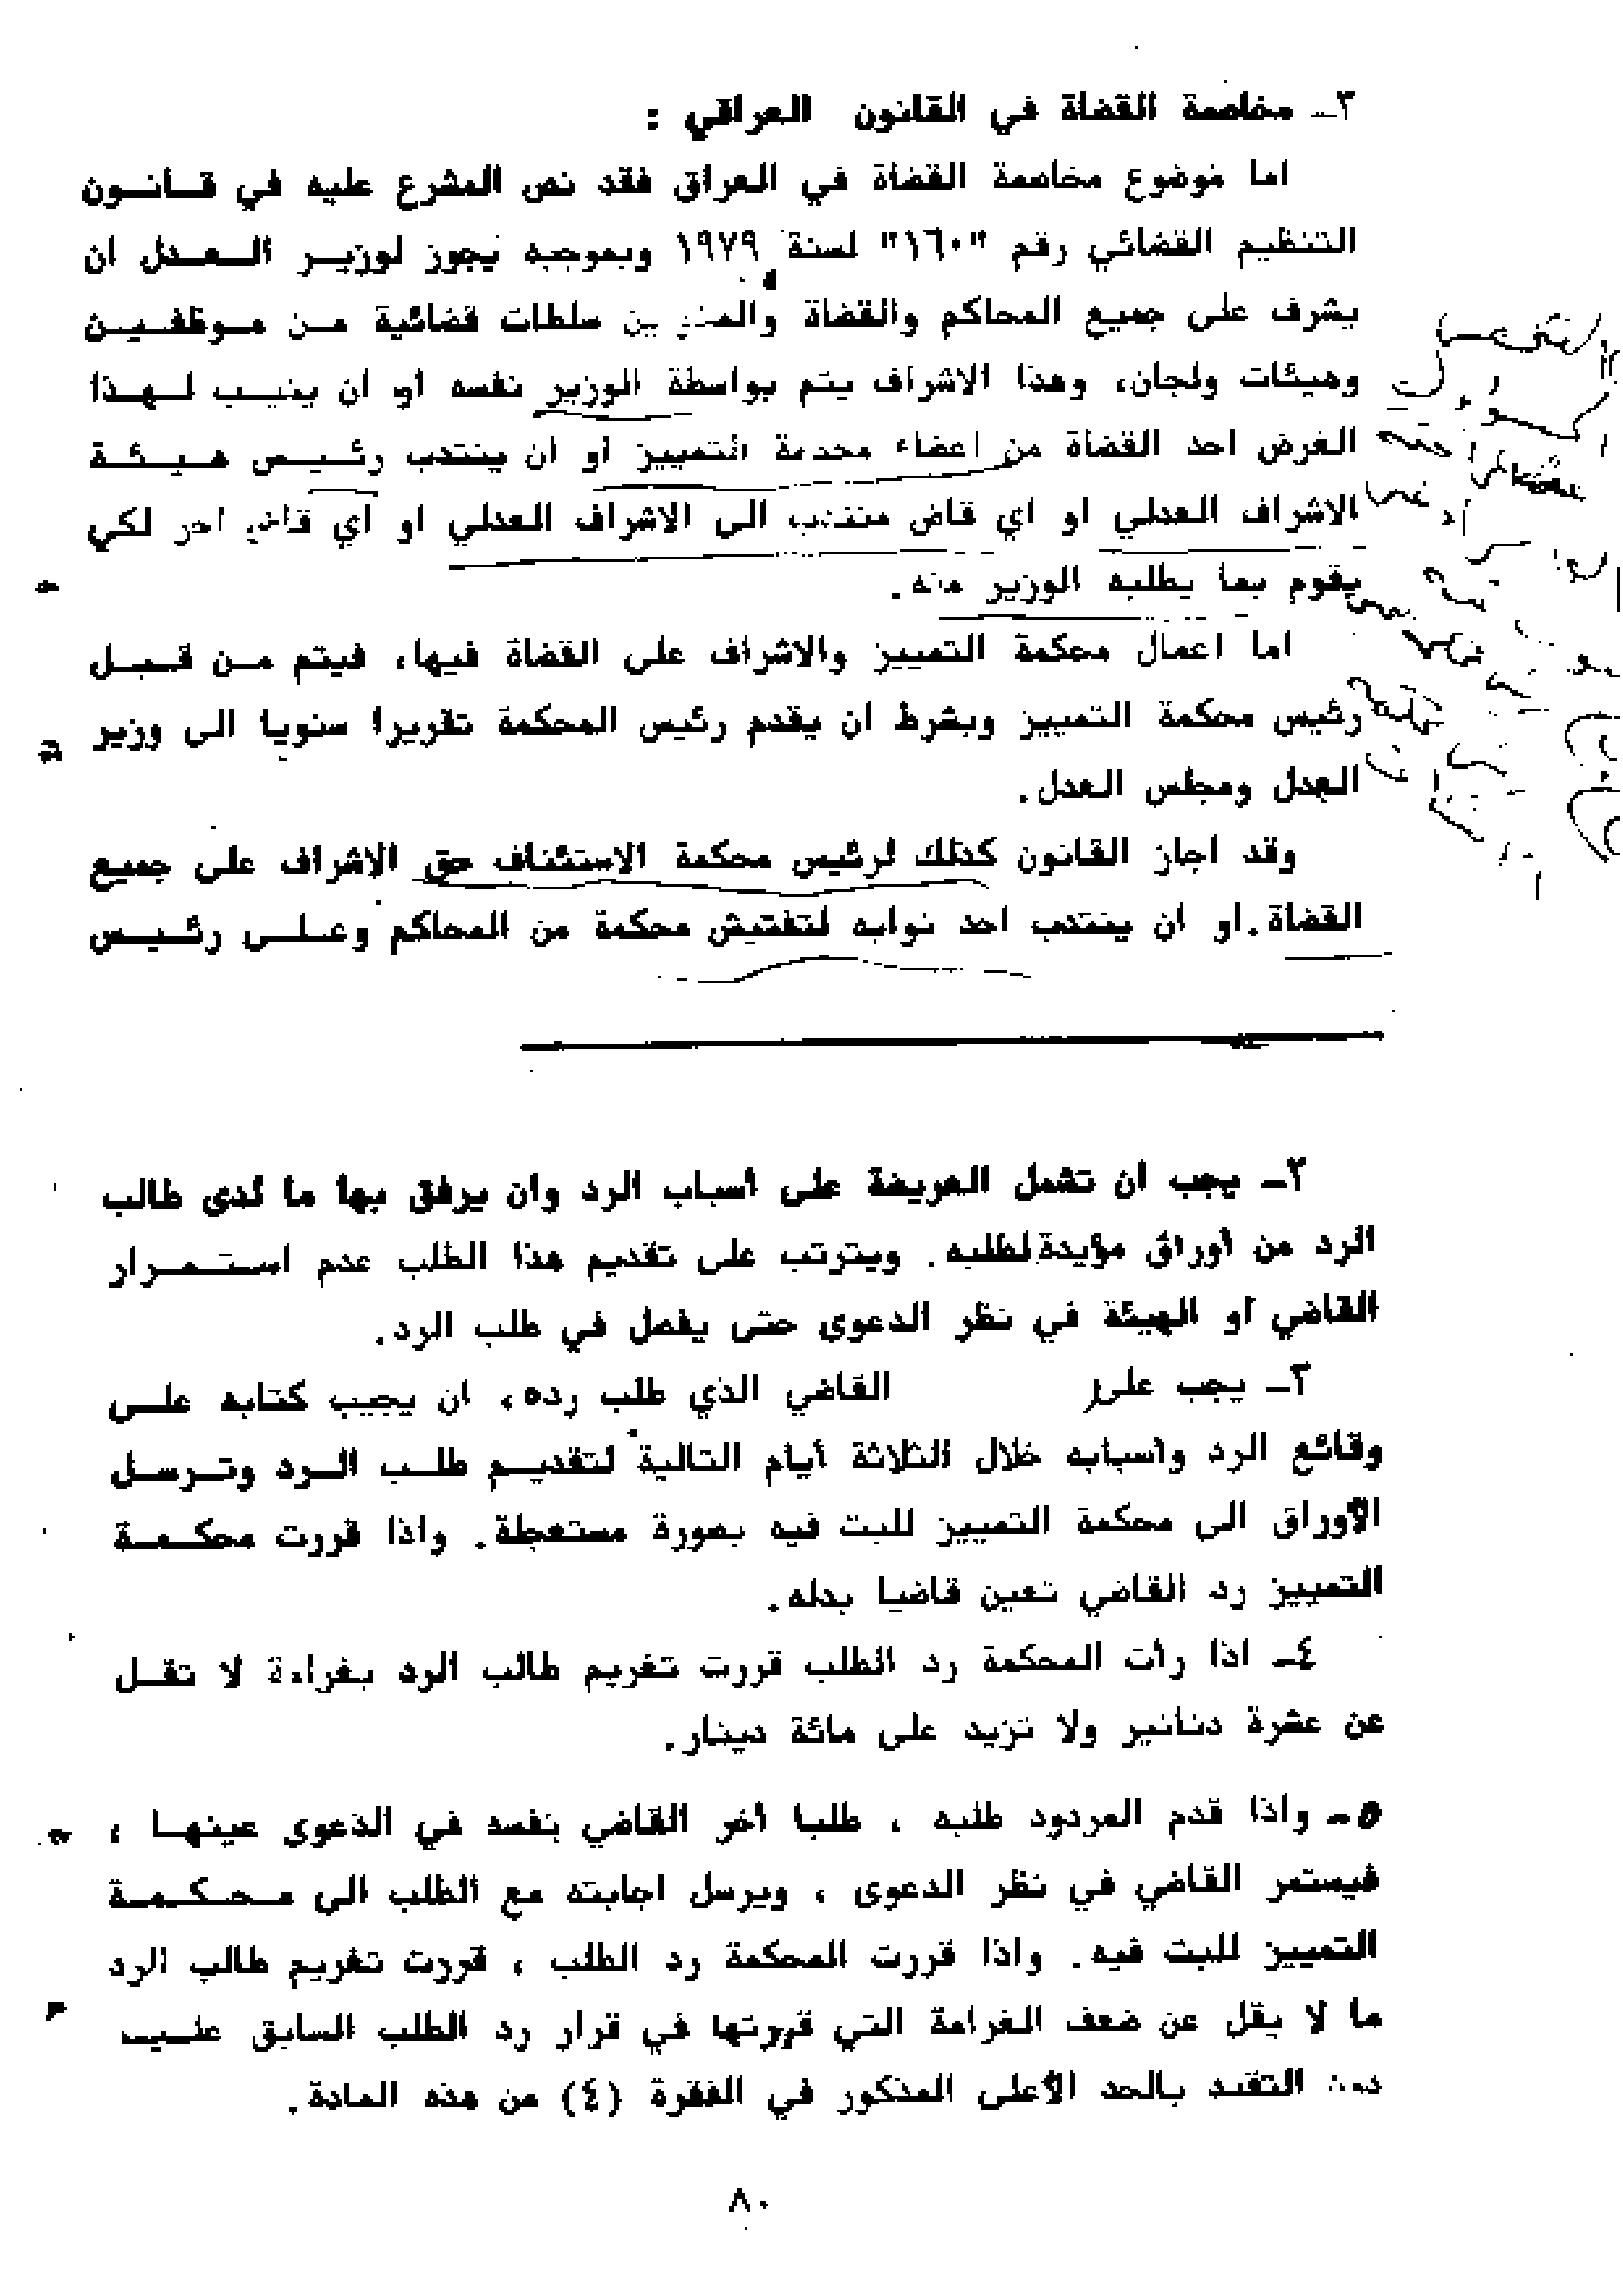 ٢ـ مخاصمة القضاة في القانون العراقي :
اما موضوع مخاصمة القضاة في العراق فقد نص المشرع عليه في قـانـون
التنظيم القضائي رقم "١٦٠" لسنة ١٩٧٩ وبموجبه يجوز لوزيـر الـعـدل ان
يشرف على جميع المحاكم والقضاة سلطات قضائية مـن مـوظفـيـن
وهيئات ولجان، وهذا الاشراف يتم بواسطة الوزير نفسه او ان ينيـب لـهـذا
الغرض احد القضاة من اعضاء محكمة التمييز او ان ينتدب رئـيـس هـيـئـة
الاشراف العدلي او اي قاض منتدب الى الاشراف العدلي او اي قاض اخر لكي
يقوم بما يطلبه الوزير منه.
اما اعمال محكمة التمييز والاشراف على القضاة فيها، فيتم مـن قـبـل
رئيس محكمة التمييز وبشرط ان يقدم رئيس المحكمة تقريرا سنويا الى وزير
العدل ومجلس العدل.
وقد اجاز القانون كذلك لرئيس محكمة الاستئناف حق الاشراف على جميع
القضاة.او ان ينتدب احد نوابه لتفتيش محكمة من المحاكم وعـلـى رئـيـس
٢ـ يجب ان تشمل العريضة على أسباب الرد وان يرفق بها ما لدى طالب
الرد من أوراق مؤيدة لطلبه. ويترتب على تقديم هذا الطلب عدم استـمـرار
القاضي او الهيئة في نظر الدعوى حتى يفصل في طلب الرد.
٣ـ يجب على القاضي الذي طلب رده، ان يجيب كتابه علـى
وقائع الرد وأسبابه خلال الثلاثة أيام التالية لتقديـم طلـب الـرد وتـرسـل
الأوراق الى محكمة التمييز للبت فيه بصورة مستعجلة. واذا قررت محكـمـة
التمييز رد القاضي تعين قاضيا بدله.
٤ـ اذا رأت المحكمة رد الطلب قررت تغريم طالب الرد بغرامة لا تقـل
عن عشرة دنانير ولا تزيد على مائة دينار.
٥ـ واذا قدم المردود طلبه ، طلبا أخر القاضي بنفسه في الدعوى عينهـا ،
فيستمر القاضي في نظر الدعوى ، ويرسل اجابته مع الطلب الى مـحـكـمـة
التمييز للبت فيه. واذا قررت المحكمة رد الطلب ، قررت تغريم طالب الرد
ما لا يقل عن ضعف الغرامة التي قررتها في قرار رد الطلب السابق علـيـه
دون التقيد بالحد الأعلى المذكور في الفقرة (٤) من هذه المادة.
٨٠